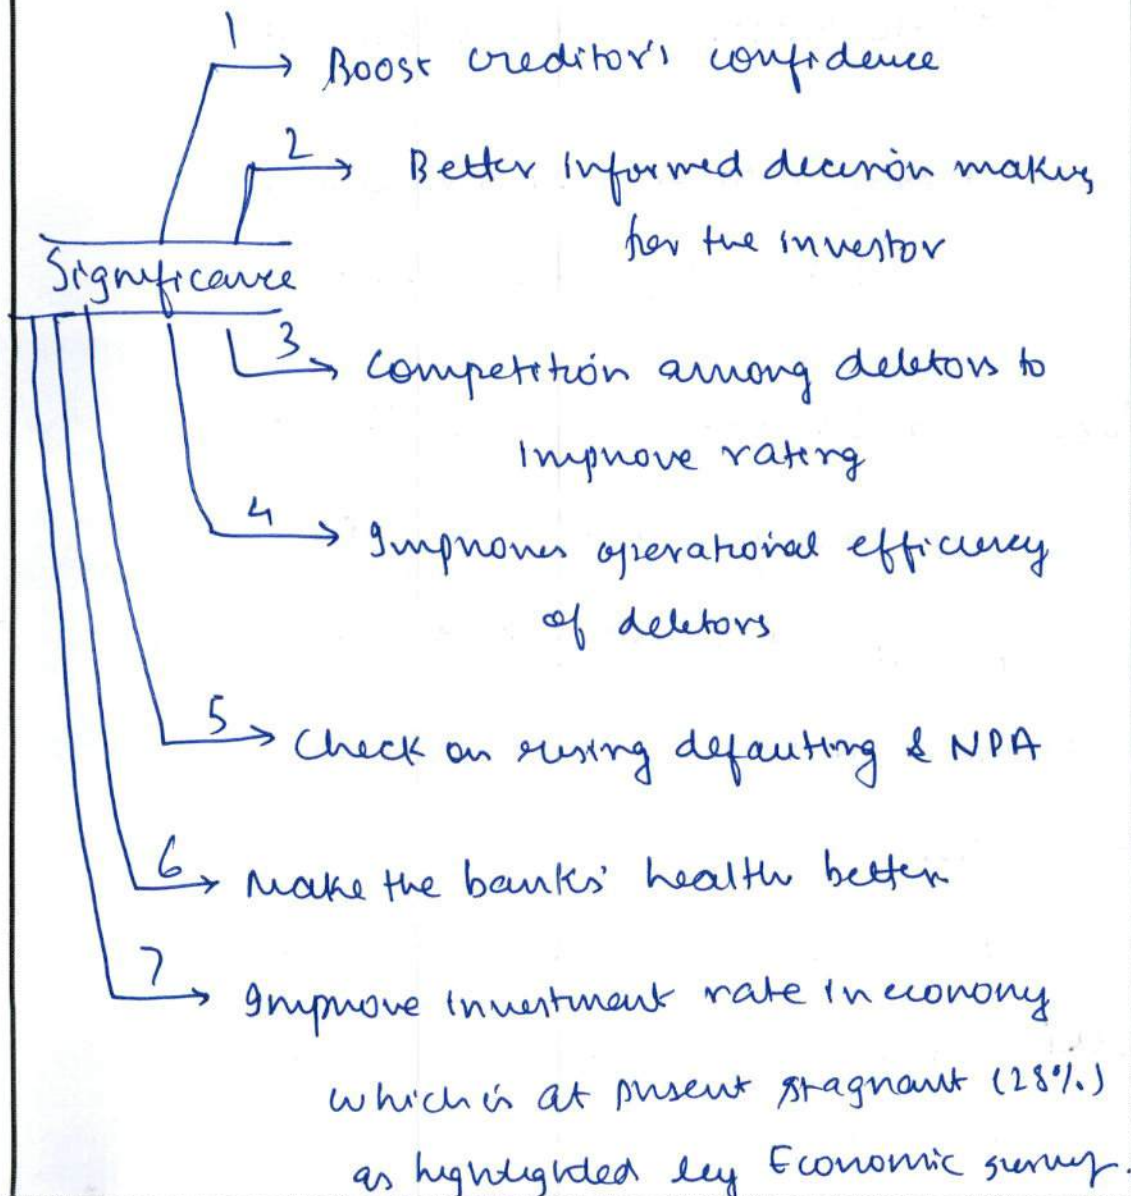 1 → Boost creditor's confidence
2 → Better informed decision making
for the investor
Significance
3 → Competition among debtors to
improve rating
4 → Improves operational efficiency
of debtors
5 → Check on rising defaulting & NPA
6 → Make the banks' health better
7 → Improve investment rate in economy
which is at present stagnant (28%)
as highlighted by Economic survey.